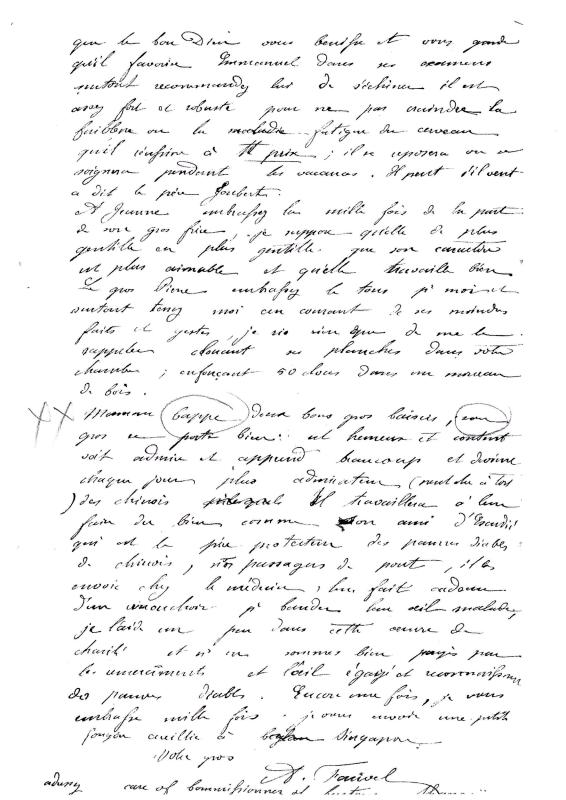 que le bon Dieu vous bénisse et vous garde
qu'il favorise Emmanuel dans ses examens
surtout recommandez lui de s'échiner il est
assez fort et robuste pour ne pas craindre la
faiblesse ou la maladie fatigue du cerveau
qu'il conspire à prix ; il se reposera ou se
soignera pendant les vacances. Il peut s'il veut
a dit le père Joubert.
A Jeanne embrassez la mille fois de la part
de son gros frère, je suppose qu'elle de plus
gentille en plus gentille que son caractère
est plus aimable et qu'elle travaille bien
Le gros Pierre embrassez le tous pr moi et
surtout tenez moi au courant de ses moindres
faits et gestes, je ris rien que de me le
rappeler clouant ses planches dans votre
chambre ; enfonçant 50 clous dans un morceau
de bois.
XX Maman deux bons gros baisers, son
gros se porte bien est heureux et content
voit admire et apprend beaucoup et devient
chaque jour plus admirateur (peut être à tort
) des chinois Il travaillera à leur
faire du bien comme son ami
qui est le père protecteur des pauvres diables
de chinois, nos passagers de pont, il les
envoie chez le médecin, leur fait cadeau
d'un mouchoir pr bander leur œil malade,
je l'aide un peu dans cette œuvre de
charité et n's en sommes bien payés par
les remerciements et l'œil égayé et reconnaissant
des pauvres diables. Encore une fois, je vous
embrasse mille fois. je vous envoie une petite
fougère cueillie à Singapore.
Votre gros
A. Fauvel
adressez care of Commissioner of